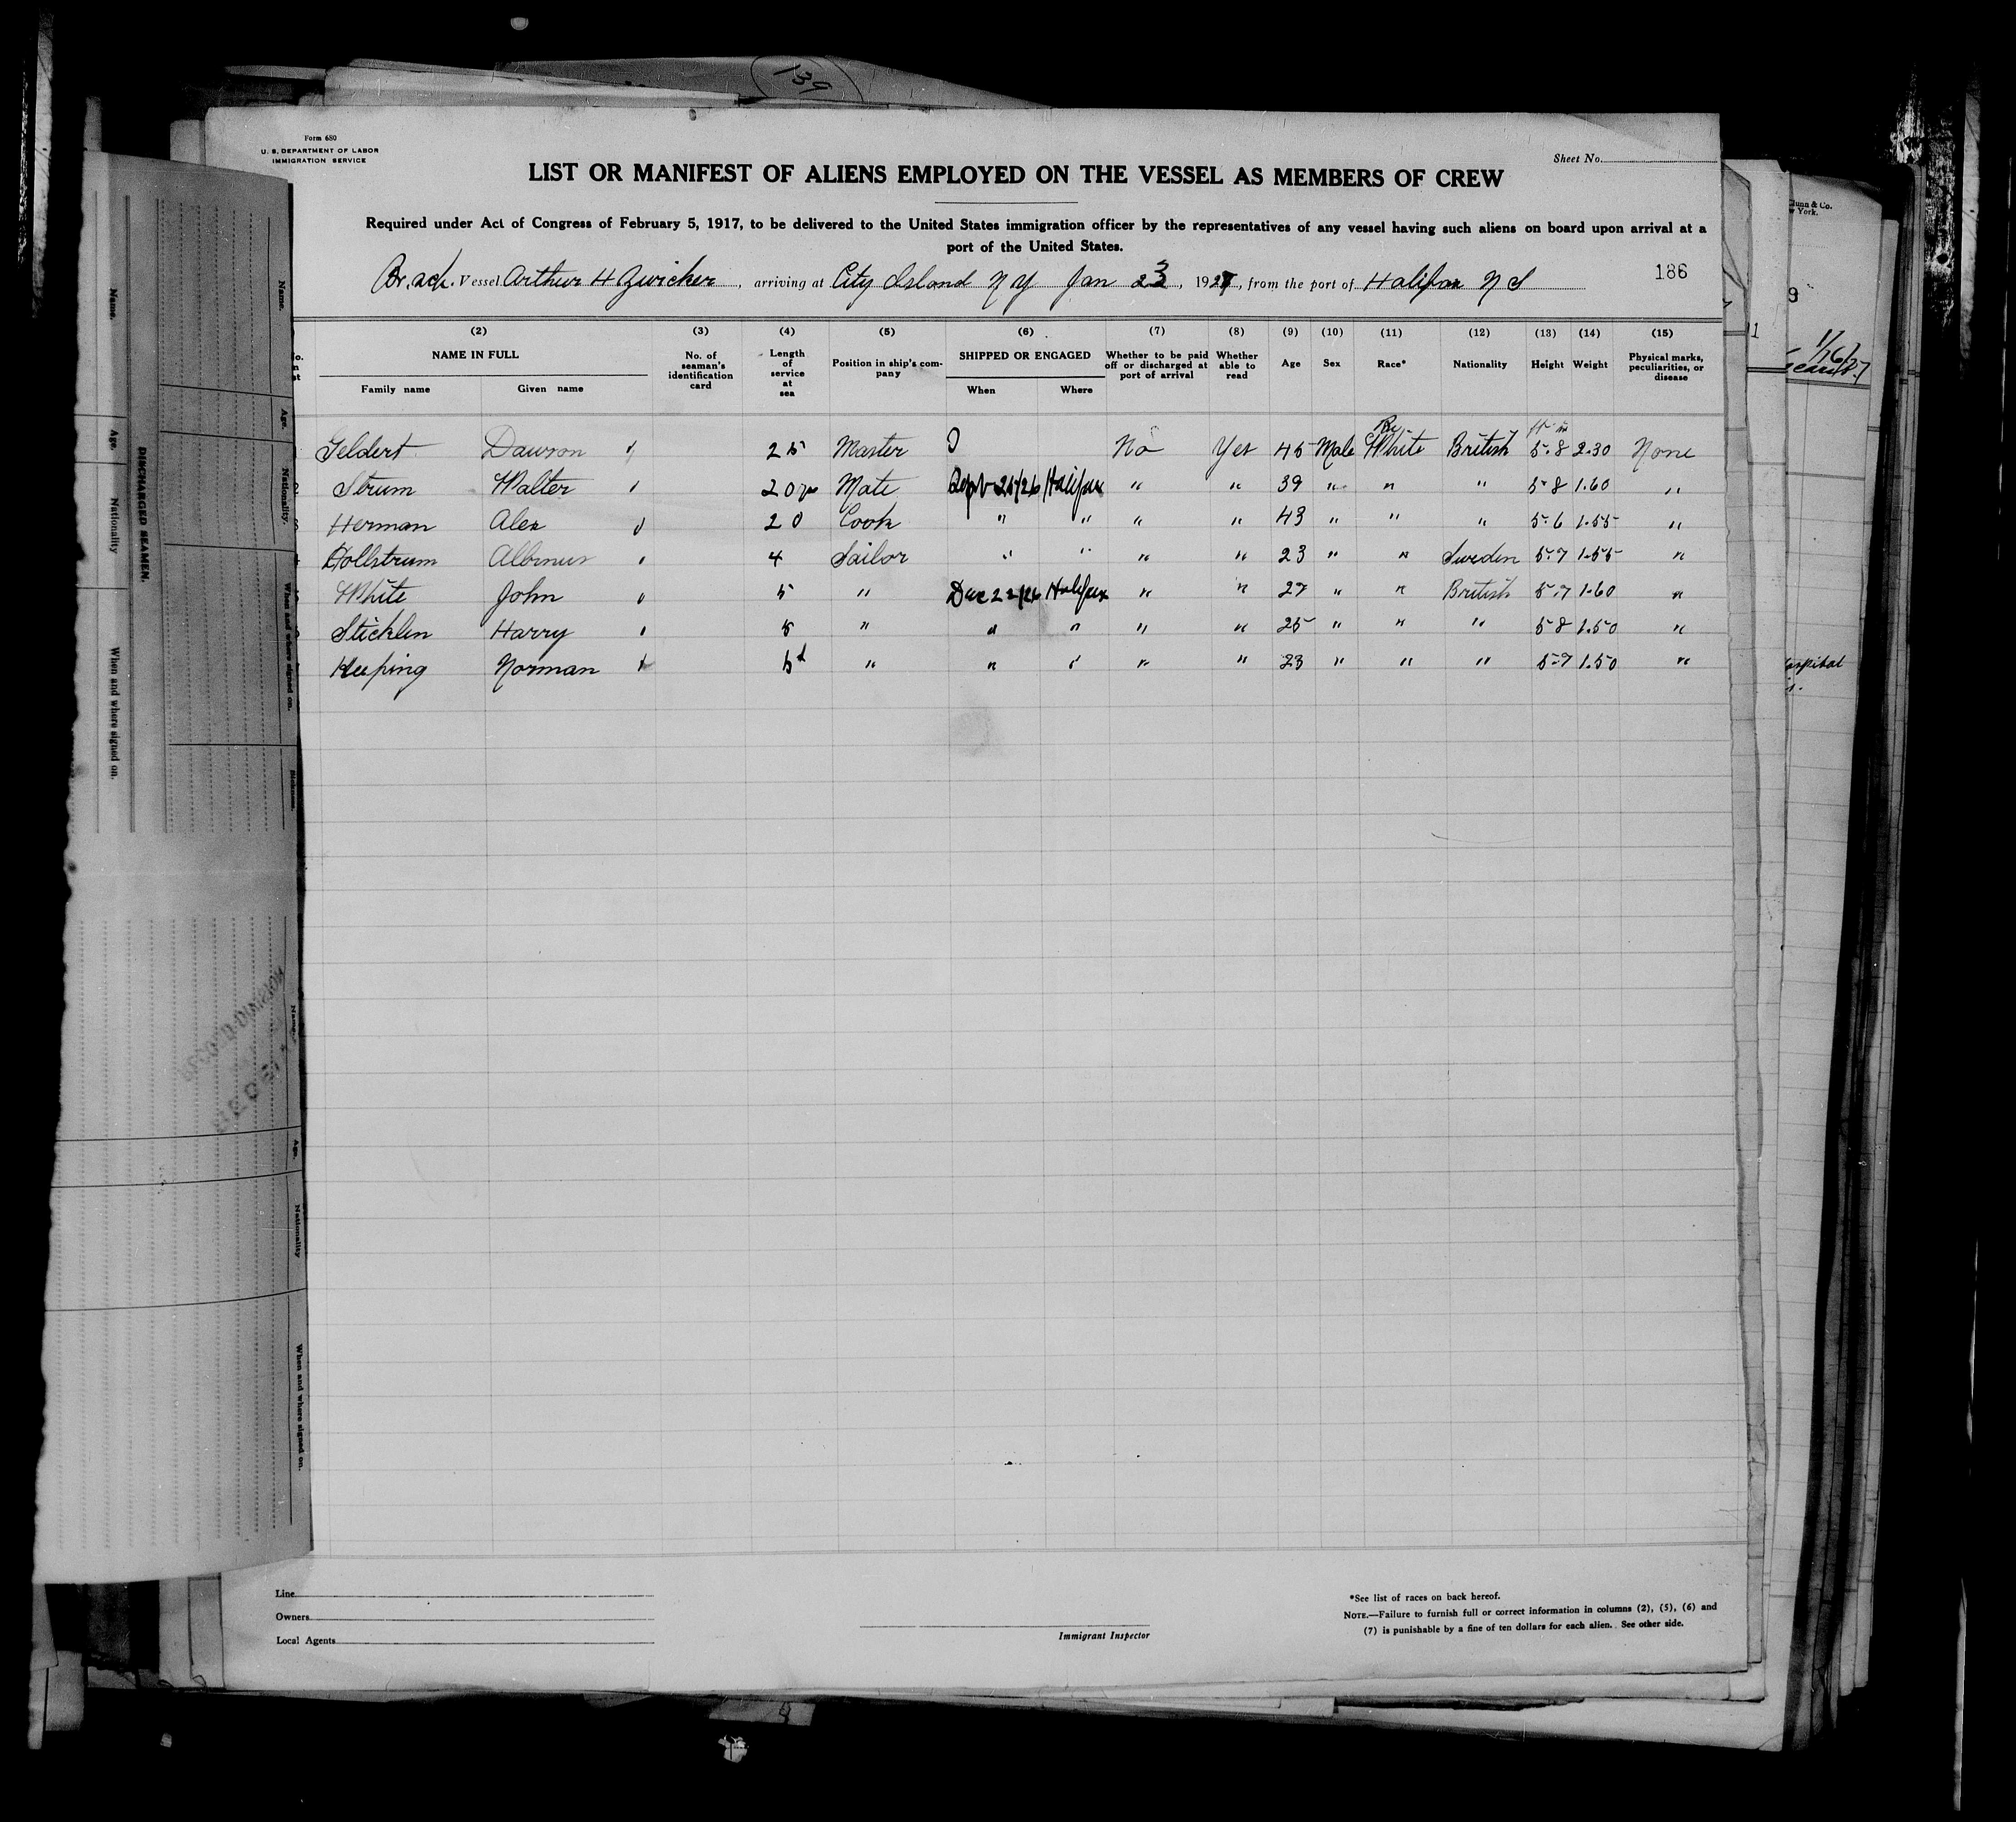 139
Form 680
U. S. DEPARTMENT OF LABOR
IMMIGRATION SERVICE
Sheet No.
LIST OR MANIFEST OF ALIENS EMPLOYED ON THE VESSEL AS MEMBERS OF CREW
Required under Act of Congress of February 5, 1917, to be delivered to the United States immigration officer by the representatives of any vessel having such aliens on board upon arrival at a
port of the United States.
Br. sch. Vessel Arthur H Zwicker, arriving at City Island N Y Jan 23, 1927, from the port of Halifax N S
186
(2) (3) (4) (5) (6) (7) (8) (9) (10) (11) (12) (13) (14) (15)
NAME IN FULL
Family name Given name
No. of seaman's identification card
Length of service at sea
Position in ship's company
SHIPPED OR ENGAGED
When Where
Whether to be paid off or discharged at port of arrival
Whether able to read
Age
Sex
Race*
Nationality
Height
Weight
Physical marks, peculiarities, or disease
Geldert Dawson 25 Master No Yes 45 Male White British 5.8 2.30 None
Strum Walter 20 Mate Sept 25/26 Halifax " " 39 " " " 5 8 1.60 "
Herman Alex 20 Cook " " " " 43 " " " 5.6 1.55 "
Hollstrum Albinus 4 Sailor " " " " 23 " " Sweden 5.7 1.55 "
White John 5 " Dec 22/26 Halifax " " 27 " " British 5.7 1.60 "
Sticklen Harry 5 " " " " " 25 " " " 5 8 1.50 "
Keeping Norman 5 " " " " " 23 " " " 5.7 1.50 "
Line
Owners
Local Agents
Immigrant Inspector
*See list of races on back hereof.
NOTE.—Failure to furnish full or correct information in columns (2), (5), (6) and
(7) is punishable by a fine of ten dollars for each alien. See other side.
DISCHARGED SEAMEN.
Name.
Age.
Nationality
When and where signed on.
Name.
Age.
Nationality.
When and where signed on.
Sickness.
Name.
Age.
Nationality
When and where signed on.